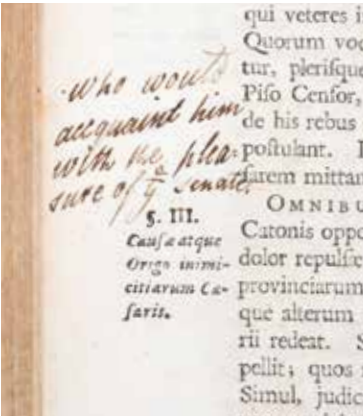 Who would
acquaint him
with the plea-
sure of yᵉ Senate.
§. III.
Causæ atque
Origo inimi-
citiarum Cæ-
saris.
qui veteres i
Quorum voc
tur, plerisque
Piso Censor,
de his rebus
postulant.
sarem mittan
OMNIBU
Catonis oppo
dolor repulsæ
provinciarum
que alterum
rii redeat. S
pellit; quos
Simul, judic